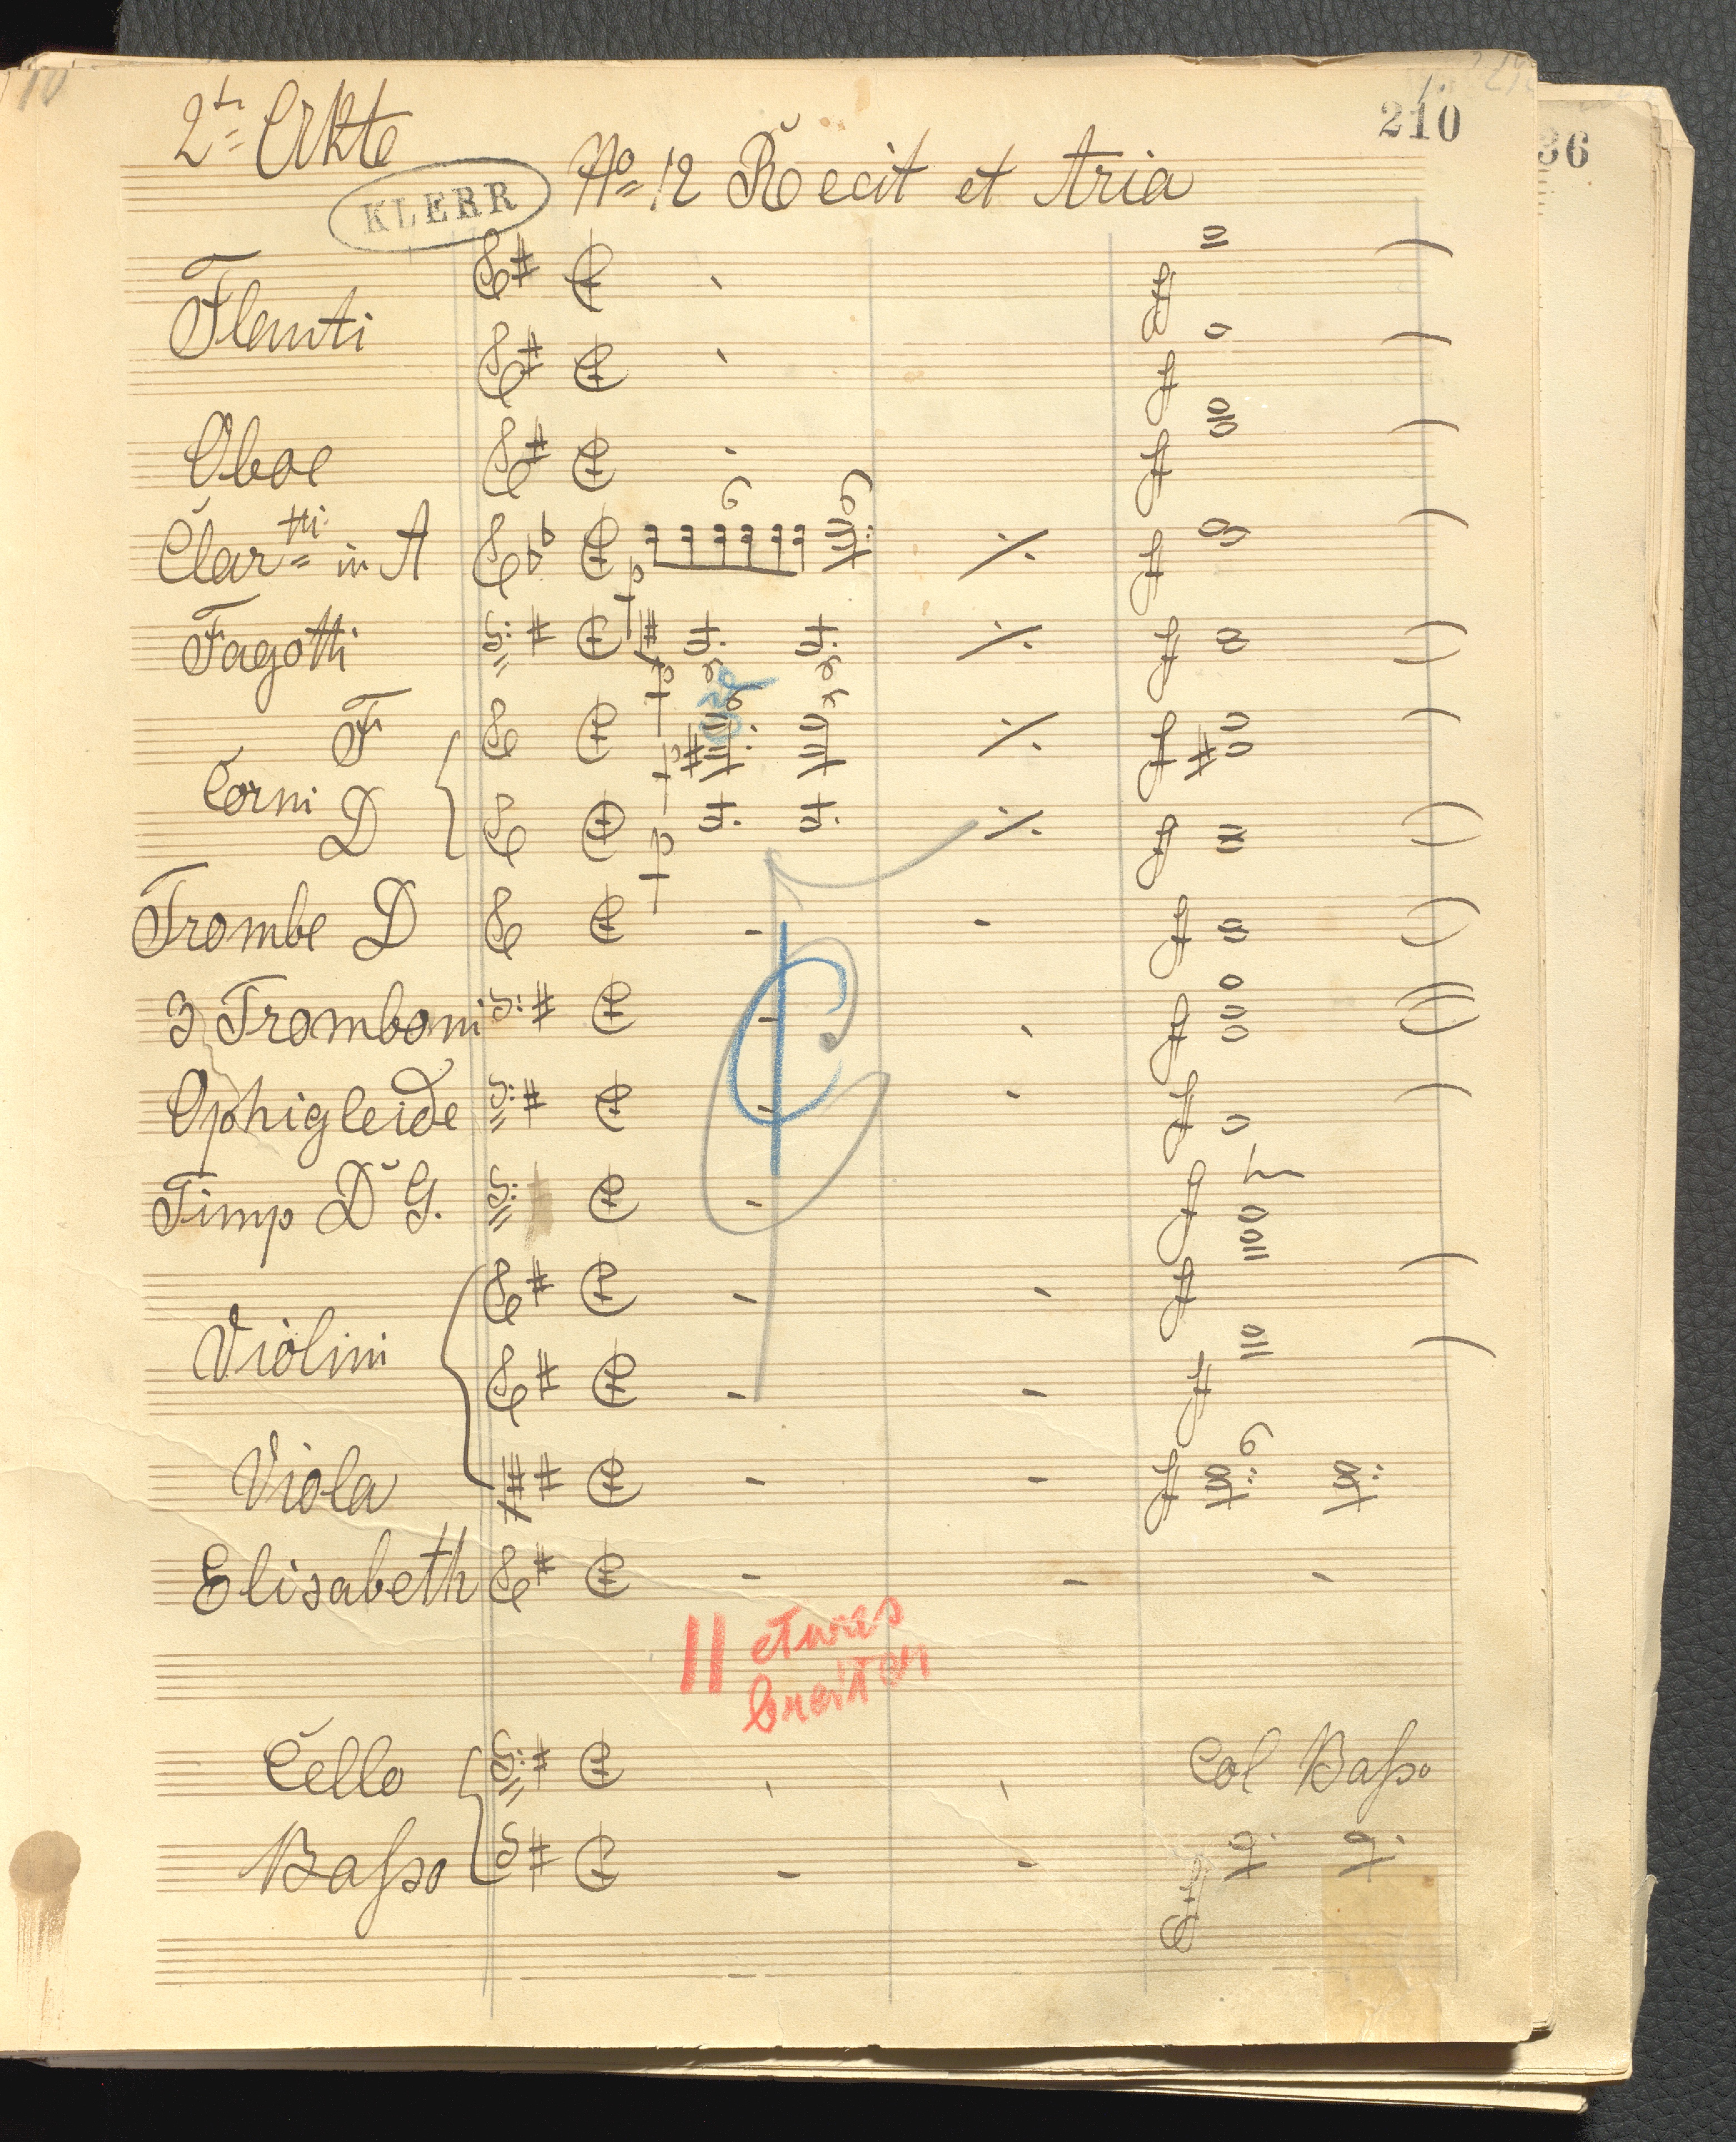 10
210
36
2te Akte
KLERR
No 12 Recit et Aria
Flauti
Oboe
Clartti in A
6 6
Fagotti
F
Corni
D
Trombe D
3 Tromboni
Ophigleide
Timp D G.
Violini
Viola
6
Elisabeth
etwas
breiter
Cello
Col Baſso
Baſso